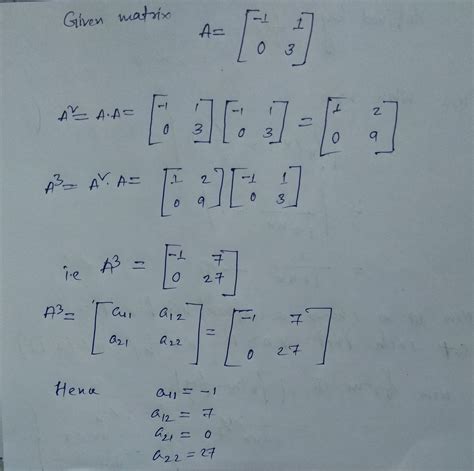 Given matrix A = [-1 1; 0 3]
A² = A.A = [-1 1; 0 3] [-1 1; 0 3] = [1 2; 0 9]
A³ = A² . A = [1 2; 0 9] [-1 1; 0 3]
i.e A³ = [-1 7; 0 27]
A³ = [a₁₁ a₁₂; a₂₁ a₂₂] = [-1 7; 0 27]
Hena a₁₁ = -1
a₁₂ = 7
a₂₁ = 0
a₂₂ = 27